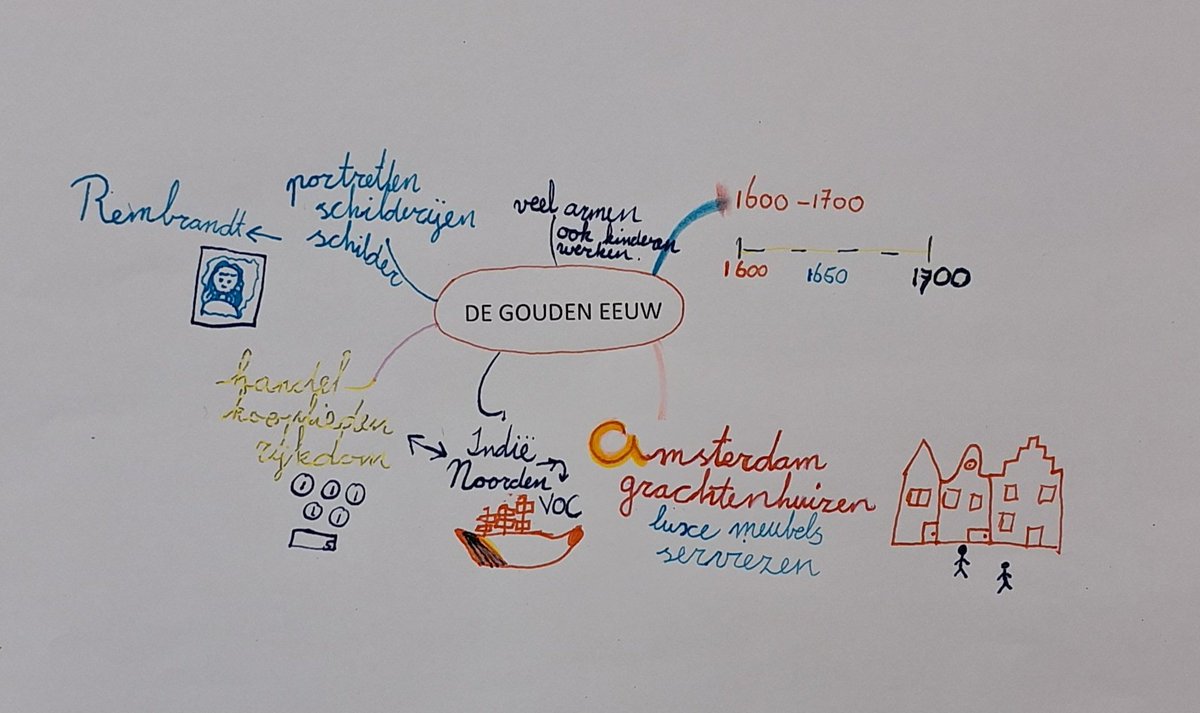 DE GOUDEN EEUW
1600 - 1700
1600 1650 1700
veel armen
ook kinderen
werken.
portretten
schilderijen
schilder
Rembrandt
handel
kooplieden
rijkdom
Indië
Noorden
VOC
Amsterdam
grachtenhuizen
luxe meubels
serviezen